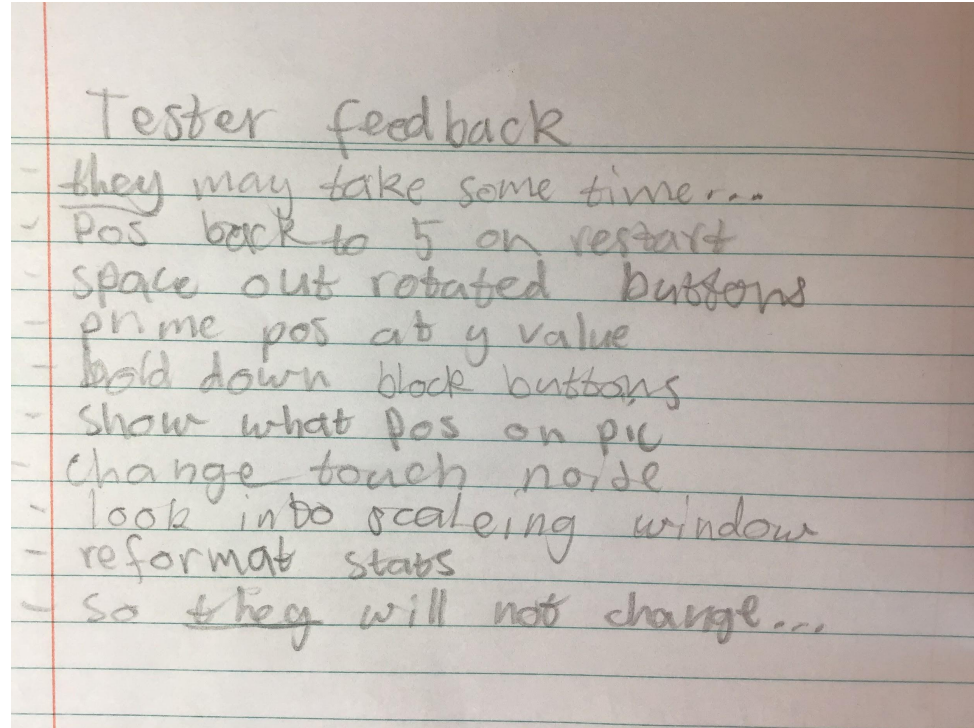 Tester feedback
- they may take some time...
- Pos back to 5 on restart
- space out rotated buttons
- prime pos at y value
- bold down block buttons
- show what pos on pic
- change touch noise
- look into scaleing window
- reformat stats
- so they will not change...